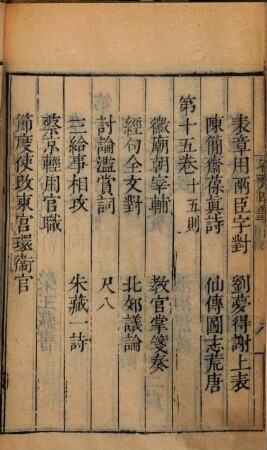 表章用兩臣字對　劉夢得謝上表
陳簡齋葆真詩　仙傳圖志荒唐
第十五卷 十五則
徽廟朝宰輔　教官掌箋奏
經句全文對　北郊議論
討論濫賞詞　尺八
三給事相攻　朱藏一詩
蔡京輕用官職
節度使改東宮環衛官